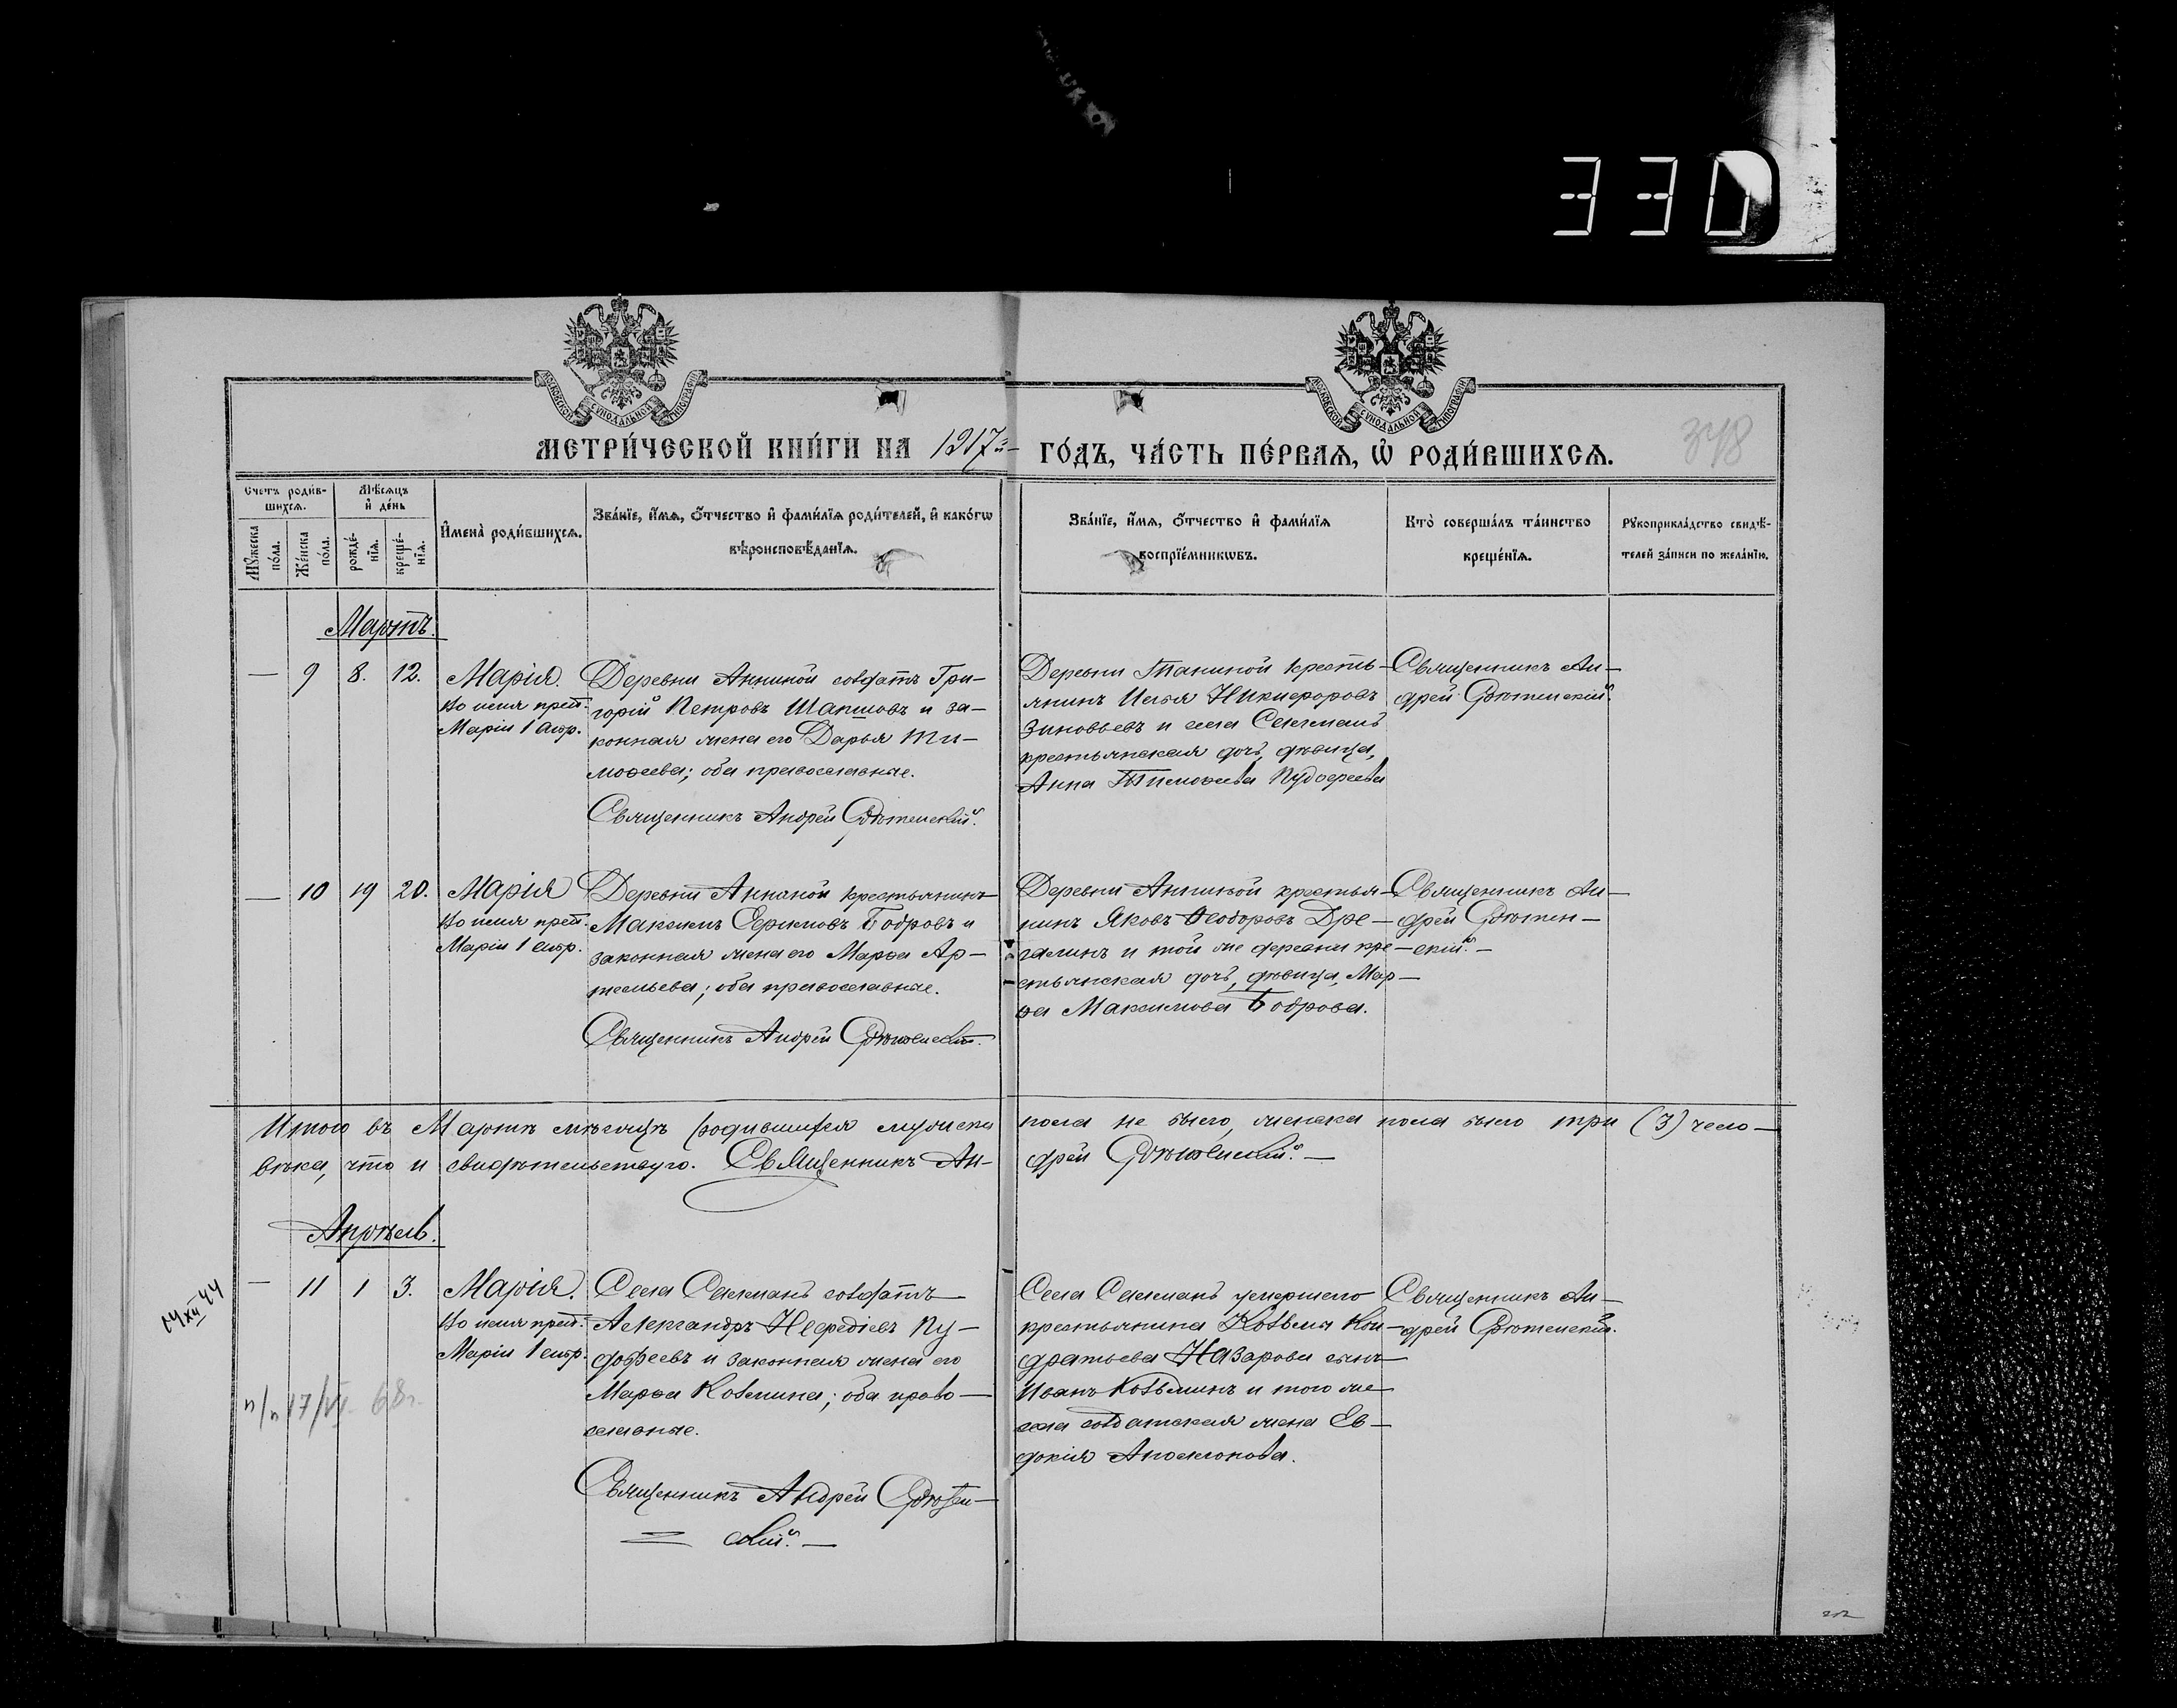 330
МОСКОВСКОЙ СУНОДАЛЬНОЙ ТИПОГРАФІИ
МОСКОВСКОЙ СУНОДАЛЬНОЙ ТИПОГРАФІИ
МЕТРИ́ЧЕСКОЙ КНИ́ГИ НА 1917 й ГО́ДЪ, ЧА́СТЬ ПЕ́РВАЯ, Ѡ҆ РОДИ́ВШИХСЯ.
348
Счетъ роди́в-
шихся.
Мꙋ́жеска по́ла.
Же́нска по́ла.
Мѣ́сяцъ
и҆ де́нь
рожде́-
нїя.
креще́-
нїя.
И҆мена̀ роди́вшихся.
Зва́нїе, и҆́мя, ѻ҆́тчество и҆ фами́лїя роди́телей, и҆ како́гѡ
вѣроисповѣ́данїя.
Зва́нїе, и҆́мя, ѻ҆́тчество и҆ фами́лїя
воспрїе́мникѡвъ.
Кто̀ соверша́лъ та́инство
креще́нїя.
Рꙋкоприкла́дство свидѣ́-
телей за́писи по жела́нїю.
Мартъ.
— 9 8. 12.
Марія.
Во имя преп.
Маріи 1 апр.
Деревни Анниной солдатъ Гри-
горій Петровъ Шапшовъ и за-
конная жена его Дарья Ти-
моѳеева; оба православные.
Священникъ Андрей
Деревни Таниной кресть-
янинъ Илья Никифоровъ
Зиновьевъ и села Салмань
крестьянская дочь, дѣвица,
Анна Тимоѳеева Пудофеева
Священникъ Ан-
дрей
— 10 19 20.
Марія
Во имя преп.
Маріи 1 апр.
Деревни Анниной крестьянинъ
Максимъ Ефимовъ Бобровъ и
законная жена его Марѳа Ар-
темьева; оба православные.
Священникъ Андрей
Деревни Анниной крестья-
нинъ Яковъ Ѳеодоровъ Дре-
галинъ и той же деревни кре-
стьянская дочь, дѣвица, Мар-
ѳа Максимова Боброва.
Священникъ Ан-
дрей
Итого въ Мартѣ мѣсяцѣ родившихся мужска пола не было, женска пола было три (3) чело-
вѣка, что и свидѣтельствую. Священникъ Ан-дрей
Апрѣль.
— 11 1 3.
Марія.
Во имя преп.
Маріи 1 апр.
Села Салмань солдатъ
Александръ Неѳедіевъ Пу-
дофеевъ и законная жена его
Марѳа Козмина; оба право-
славные.
Священникъ Андрей
Села Салмань умершаго
крестьянина Козьмы Кон-
дратьева Назарова сынъ
Иванъ Козьминъ и того же
села солдатская жена Ев-
докія Аполлонова.
Священникъ Ан-
дрей
п/п 17/VI 68г.